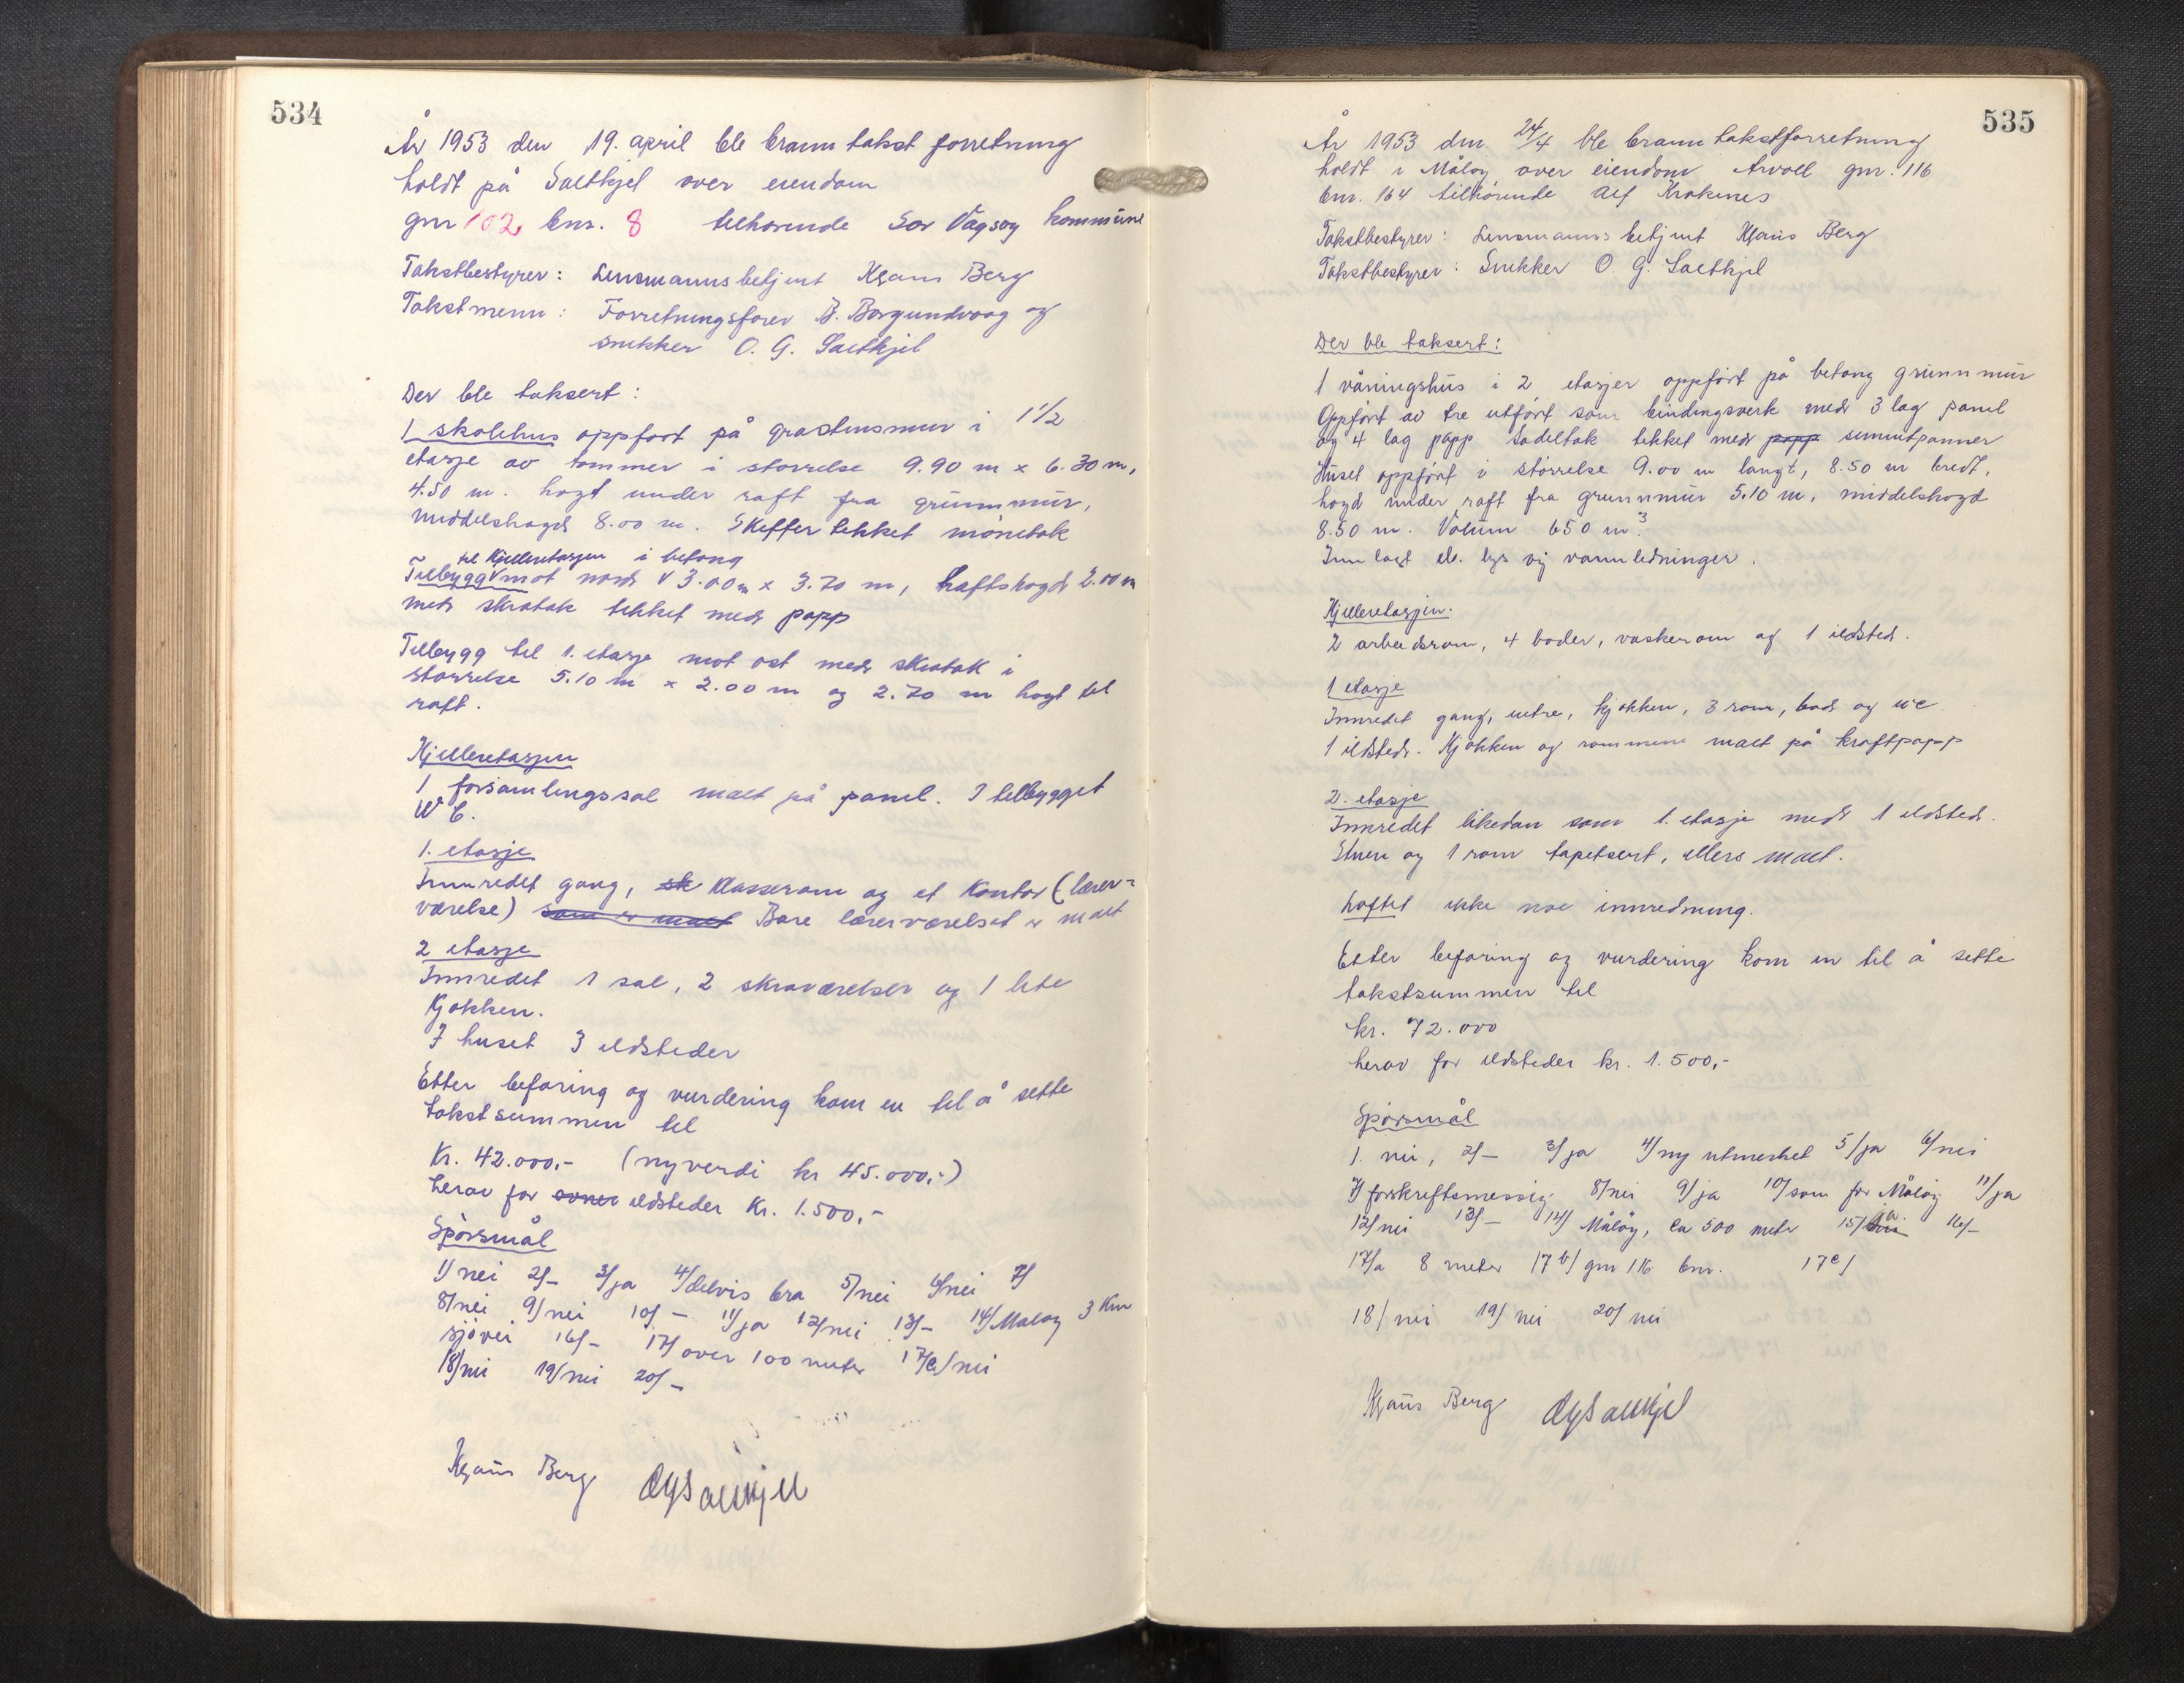 534
År 1953 den 19. april ble branntakst forretning
holdt på Saltkjel over eiendom
gnr 102 bnr. 8 tilhørende Sør Vågsøy kommune
Takstbestyrer: Lensmannsbetjent Klaus Berg
Takstmenn: Forretningsfører B. Borgundvaag og
snekker O. G. Saltkjel
Der ble taksert:
1 skolehus oppført på gråsteinsmur i 1 1/2
etasje av tømmer i størrelse 9.90 m x 6.30 m,
4.50 m. høgt under raft fra grunnmur,
middelshøgd 8.00 m. Skiffertekket mønetak
til Kjelleretasjen i betong
Tilbygg mot nord 3.00 m x 3.70 m, raftshøgd 2.00 m
med skråtak tekket med papp
Tilbygg til 1. etasje mot øst med skråtak i
størrelse 5.10 m x 2.00 m og 2.70 m høgt til
raft.
Kjelleretasjen
1 forsamlingssal malt på panel. I tilbygget
WC.
1. etasje
Innredet gang, sk klasserom og et kontor (lærer-
værelse) som er malt Bare lærerværelset er malt
2 etasje
Innredet 1 sal, 2 skråværelser og 1 lite
kjøkken.
I huset 3 ildsteder
Etter befaring og vurdering kom en til å sette
takstsummen til
Kr. 42.000,- (nyverdi kr 45.000,-)
herav for ovner ildsteder Kr. 1.500,-
Spørsmål
1/ nei 2/- 3/ja 4/delvis bra 5/nei 6/nei 7/
8/nei 9/nei 10/- 11/ja 12/nei 13/- 14/Måløy 3 km
sjøvei 16/- 17/ over 100 meter 17c/nei
18/nei 19/nei 20/-
Klaus Berg OGSaltkjel
535
År 1953 den 24/4 ble branntakstforretning
holdt i Måløy over eiendom Arvoll gnr. 116
bnr. 164 tilhørende Alf Kråkenes
Takstbestyrer: Lensmannsbetjent Klaus Berg
Takstbestyrer: Snekker O. G. Saltkjel
Der ble taksert:
1 våningshus i 2 etasjer oppført på betong grunnmur
Oppført av tre utført som bindingsverk med 3 lag panel
og 4 lag papp Sadeltak tekket med papp sementpanner
Huset oppført i størrelse 9.00 m langt, 8.50 m bredt,
høgd under raft fra grunnmur 5.10 m, middelshøgd
8.50 m. Volum 650 m³.
Innlagt el. lys og vannledninger.
Kjelleretasjen.
2 arbeidsrom, 4 boder, vaskerom og 1 ildsted.
1 etasje
Innredet gang, entre, kjøkken, 3 rom, bad og wc
1 ildsted. Kjøkken og rommene malt på kraftpapp
2. etasje
Innredet likedan som 1. etasje med 1 ildsted.
Stuen og 1 rom tapetsert, ellers malt.
Loftet ikke noe innredning.
Etter befaring og vurdering kom en til å sette
takstsummen til
kr. 72.000
herav for ildsteder kr. 1.500,-
Spørsmål
1. nei, 2/- 3/ja 4/ny utmerket 5/ja 6/nei
7/ forskriftsmessig 8/nei 9/ja 10/som for Måløy 11/ja
12/nei 13/- 14/ Måløy, ca 500 meter 15/ ja. 16/-
17/a 8 meter 17 b/ gnr 116 bnr. 17c/
18/ nei 19/ nei 20/ nei
Klaus Berg OGSaltkjel